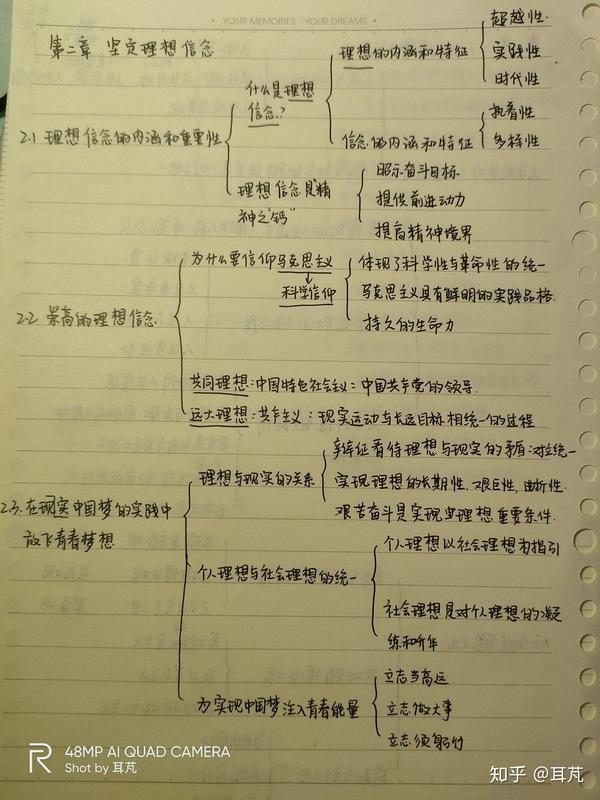 • YOUR MEMORIES   YOUR DREAMS •
第二章 坚定理想信念
2.1 理想信念的内涵和重要性
什么是理想
信念?
理想的内涵和特征
超越性
实践性
时代性
信念的内涵和特征
执着性
多样性
理想信念是"精
神之"钙"
昭示奋斗目标
提供前进动力
提高精神境界
2.2 崇高的理想信念
为什么要信仰马克思主义
↓
科学信仰
体现了科学性与革命性的统一
马克思主义具有鲜明的实践品格
持久的生命力
共同理想:中国特色社会主义:中国共产党的领导.
远大理想:共产主义:现实运动与长远目标相统一的过程
2.3.在现实中国梦的实践中
放飞青春梦想
理想与现实的关系
辩证看待理想与现实的矛盾:对立统一
实现理想的长期性.艰巨性,曲折性.
艰苦奋斗是实现理想重要条件.
个人理想与社会理想的统一
个人理想以社会理想为指引
社会理想是对个人理想的凝
练和升华
为实现中国梦注入青春能量
立志当高远
立志做大事
立志须躬行
48MP AI QUAD CAMERA
Shot by 耳芃
知乎 @耳芃